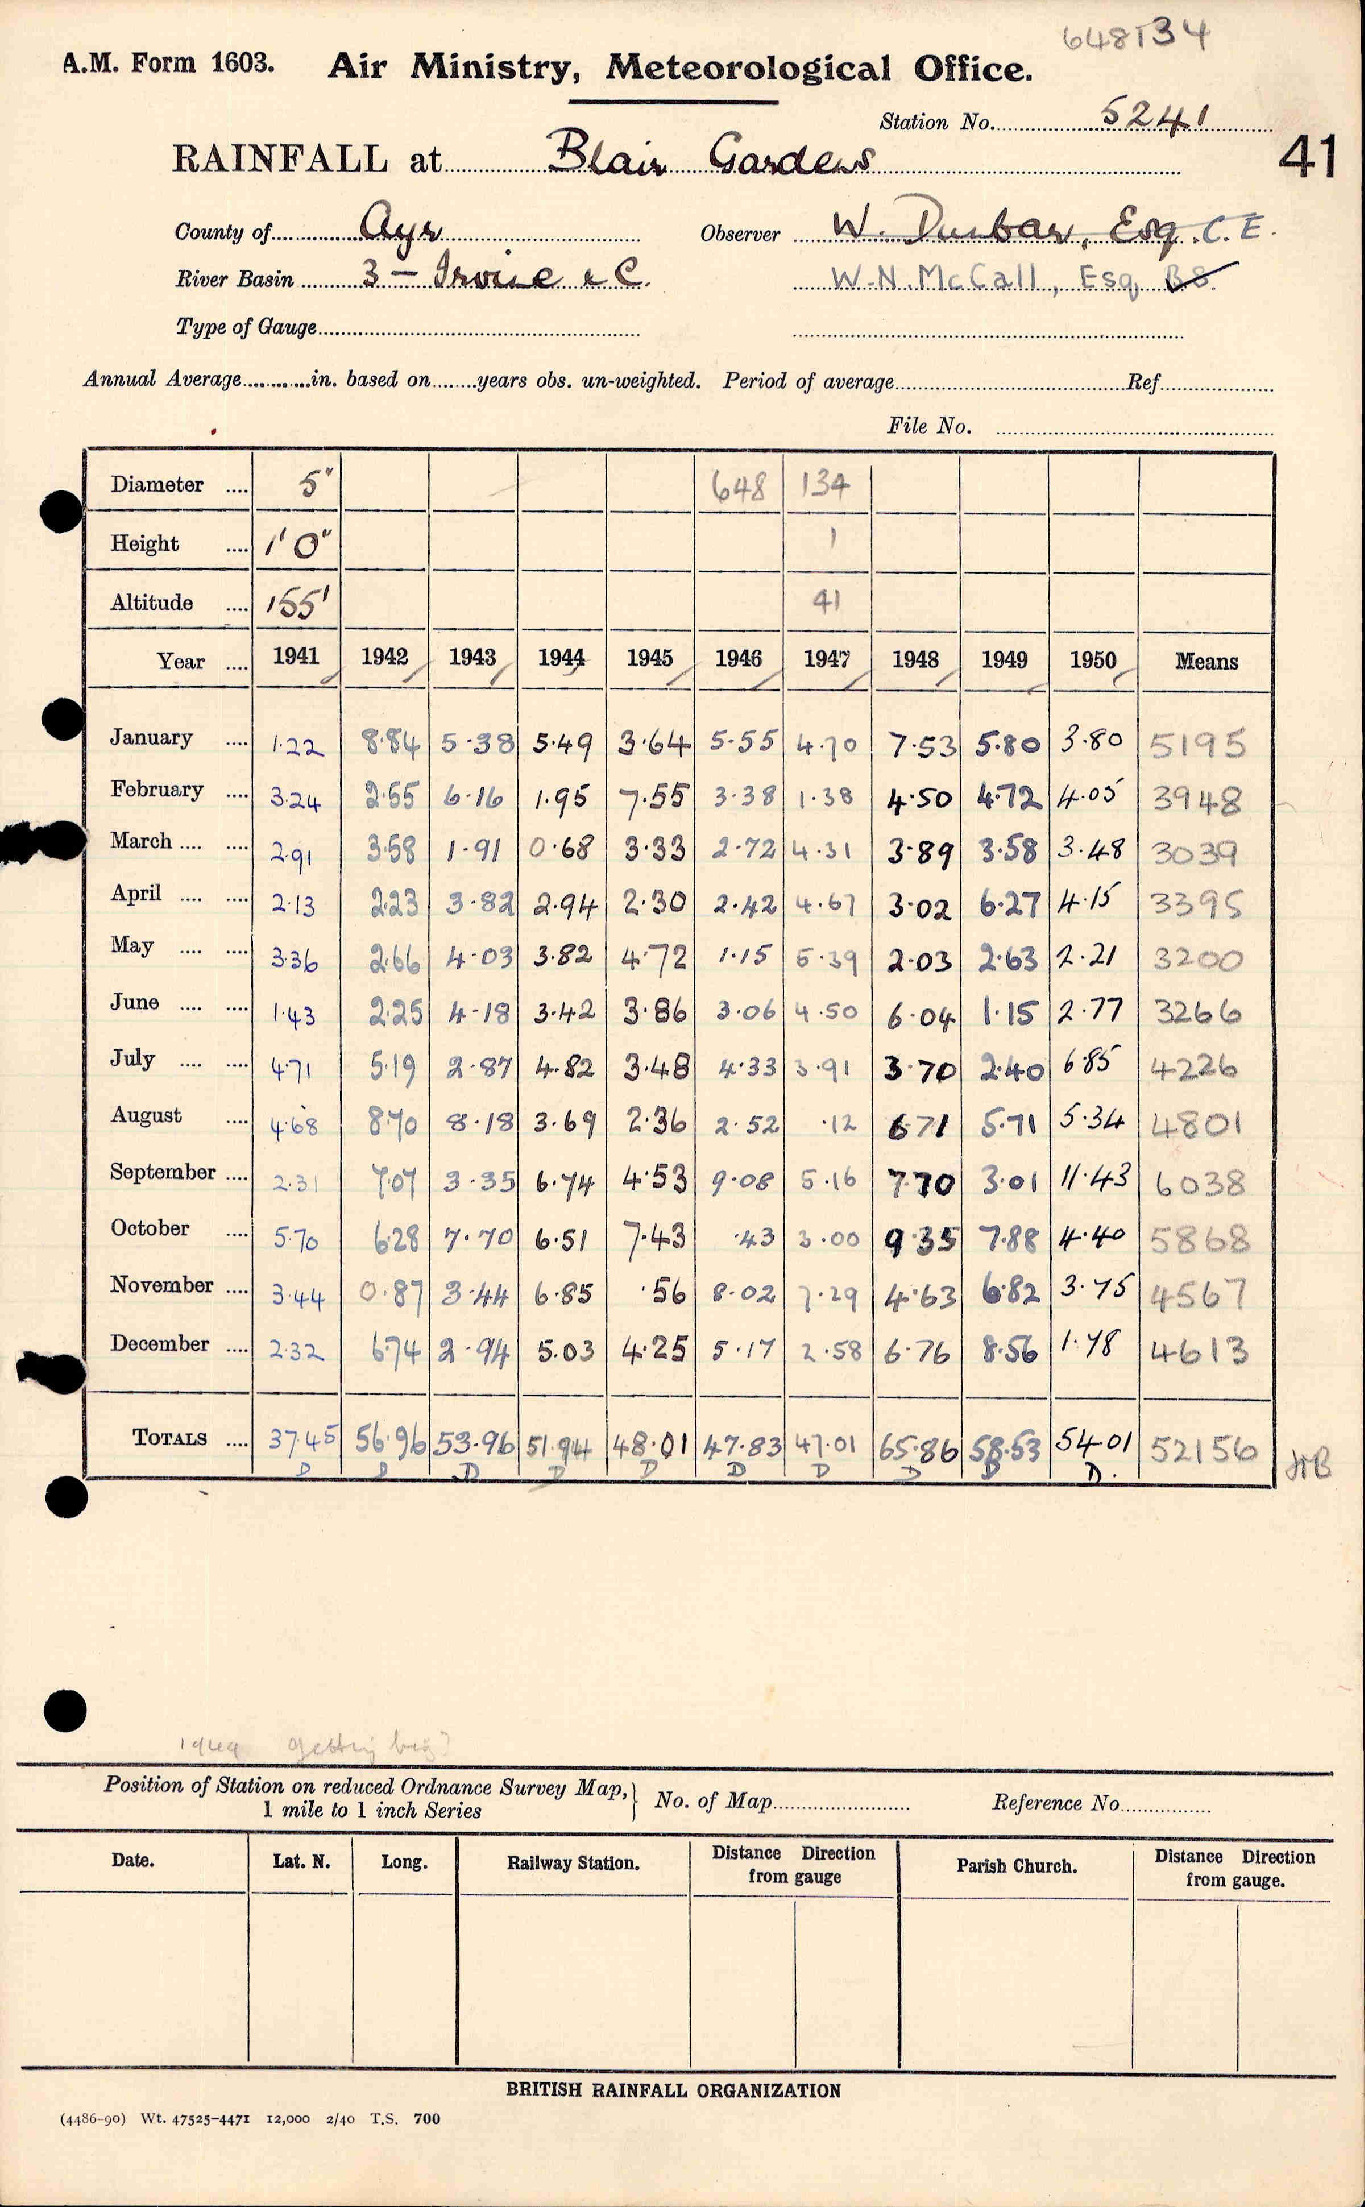 648134
A.M. Form 1603. Air Ministry, Meteorological Office.
Station No. 5241
RAINFALL at Blair Gardens 41
County of Ayr Observer W. Dunbar, Esq. C.E.
River Basin 3 – Irvine & C. W.N. McCall, Esq BS
Type of Gauge
Annual Average in. based on years obs. un-weighted. Period of average Ref.
File No.
Diameter .... 5" 648 134
Height .... 1' 0" 1
Altitude .... 155' 41
Year .... 1941 1942 1943 1944 1945 1946 1947 1948 1949 1950 Means
January .... 1.22 8.84 5.38 5.49 3.64 5.55 4.70 7.53 5.80 3.80 5195
February .... 3.24 2.55 6.16 1.95 7.55 3.38 1.38 4.50 4.72 4.05 3948
March .... .... 2.91 3.58 1.91 0.68 3.33 2.72 4.31 3.89 3.58 3.48 3039
April .... .... 2.13 2.23 3.82 2.94 2.30 2.42 4.67 3.02 6.27 4.15 3395
May .... .... 3.36 2.66 4.03 3.82 4.72 1.15 5.39 2.03 2.63 2.21 3200
June .... .... 1.43 2.25 4.18 3.42 3.86 3.06 4.50 6.04 1.15 2.77 3266
July .... .... 4.71 5.19 2.87 4.82 3.48 4.33 3.91 3.70 2.40 6.85 4226
August .... 4.68 8.70 8.18 3.69 2.36 2.52 .12 6.71 5.71 5.34 4801
September .... 2.31 7.07 3.35 6.74 4.53 9.08 5.16 7.70 3.01 11.43 6038
October .... 5.70 6.28 7.70 6.51 7.43 .43 3.00 9.35 7.88 4.40 5868
November .... 3.44 0.87 3.44 6.85 .56 8.02 7.29 4.63 6.82 3.75 4567
December .... 2.32 6.74 2.94 5.03 4.25 5.17 2.58 6.76 8.56 1.78 4613
TOTALS .... 37.45 56.96 53.96 51.94 48.01 47.83 47.01 65.86 58.53 54.01 52156
D D D D D D D D D D.
1949 getting big?
Position of Station on reduced Ordnance Survey Map, } No. of Map Reference No
1 mile to 1 inch Series
Date. Lat. N. Long. Railway Station. Distance Direction from gauge Parish Church. Distance Direction from gauge.
BRITISH RAINFALL ORGANIZATION
(4486-90) Wt. 47525-4471 12,000 2/40 T.S. 700